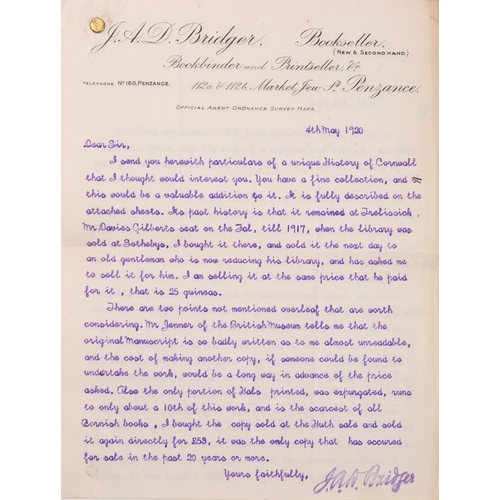 J.A.D. Bridger. Bookseller.
(NEW & SECOND HAND)
Bookbinder and Printseller, &c
TELEPHONE Nº 180, PENZANCE. 112a & 112b, Market Jew St Penzance.
OFFICIAL AGENT ORDNANCE SURVEY MAPS.
4th May 1920
Dear Sir,
I send you herewith particulars of a unique History of Cornwall
that I thought would interest you. You have a fine collection, and
this would be a valuable addition to it. It is fully described on the
attached sheets. Its past history is that it remained at Trelissick,
Mr Davies Gilberts seat on the Fal, till 1917, when the library was
sold at Sothebys, I bought it there, and sold it the next day to
an old gentleman who is now reducing his library, and has asked me
to sell it for him. I am selling it at the same price that he paid
for it, that is 25 guineas.
There are two points not mentioned overleaf that are worth
considering. Mr Jenner of the British Museum tells me that the
original Manuscript is so badly written as to me almost unreadable,
and the cost of making another copy, if someone could be found to
undertake the work, would be a long way in advance of the price
asked. Also the only portion of Hals printed, was expurgated, runs
to only about a 10th of this work, and is the scarcest of all
Cornish books, I bought the copy sold at the Huth sale and sold
it again directly for £53, it was the only copy that has occured
for sale in the past 20 years or more.
Yours faithfully, J.A.D. Bridger